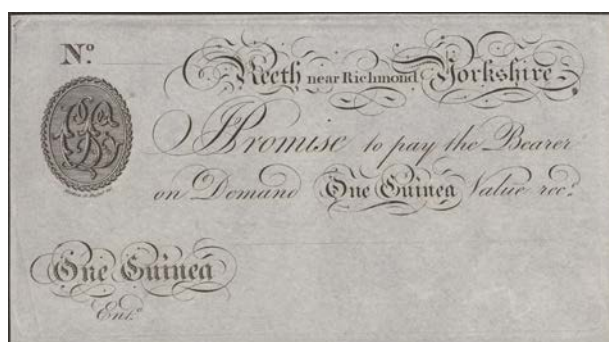 No.
Reeth near Richmond Yorkshire
I Promise to pay the Bearer
on Demand One Guinea Value recd.
One Guinea
Entd.